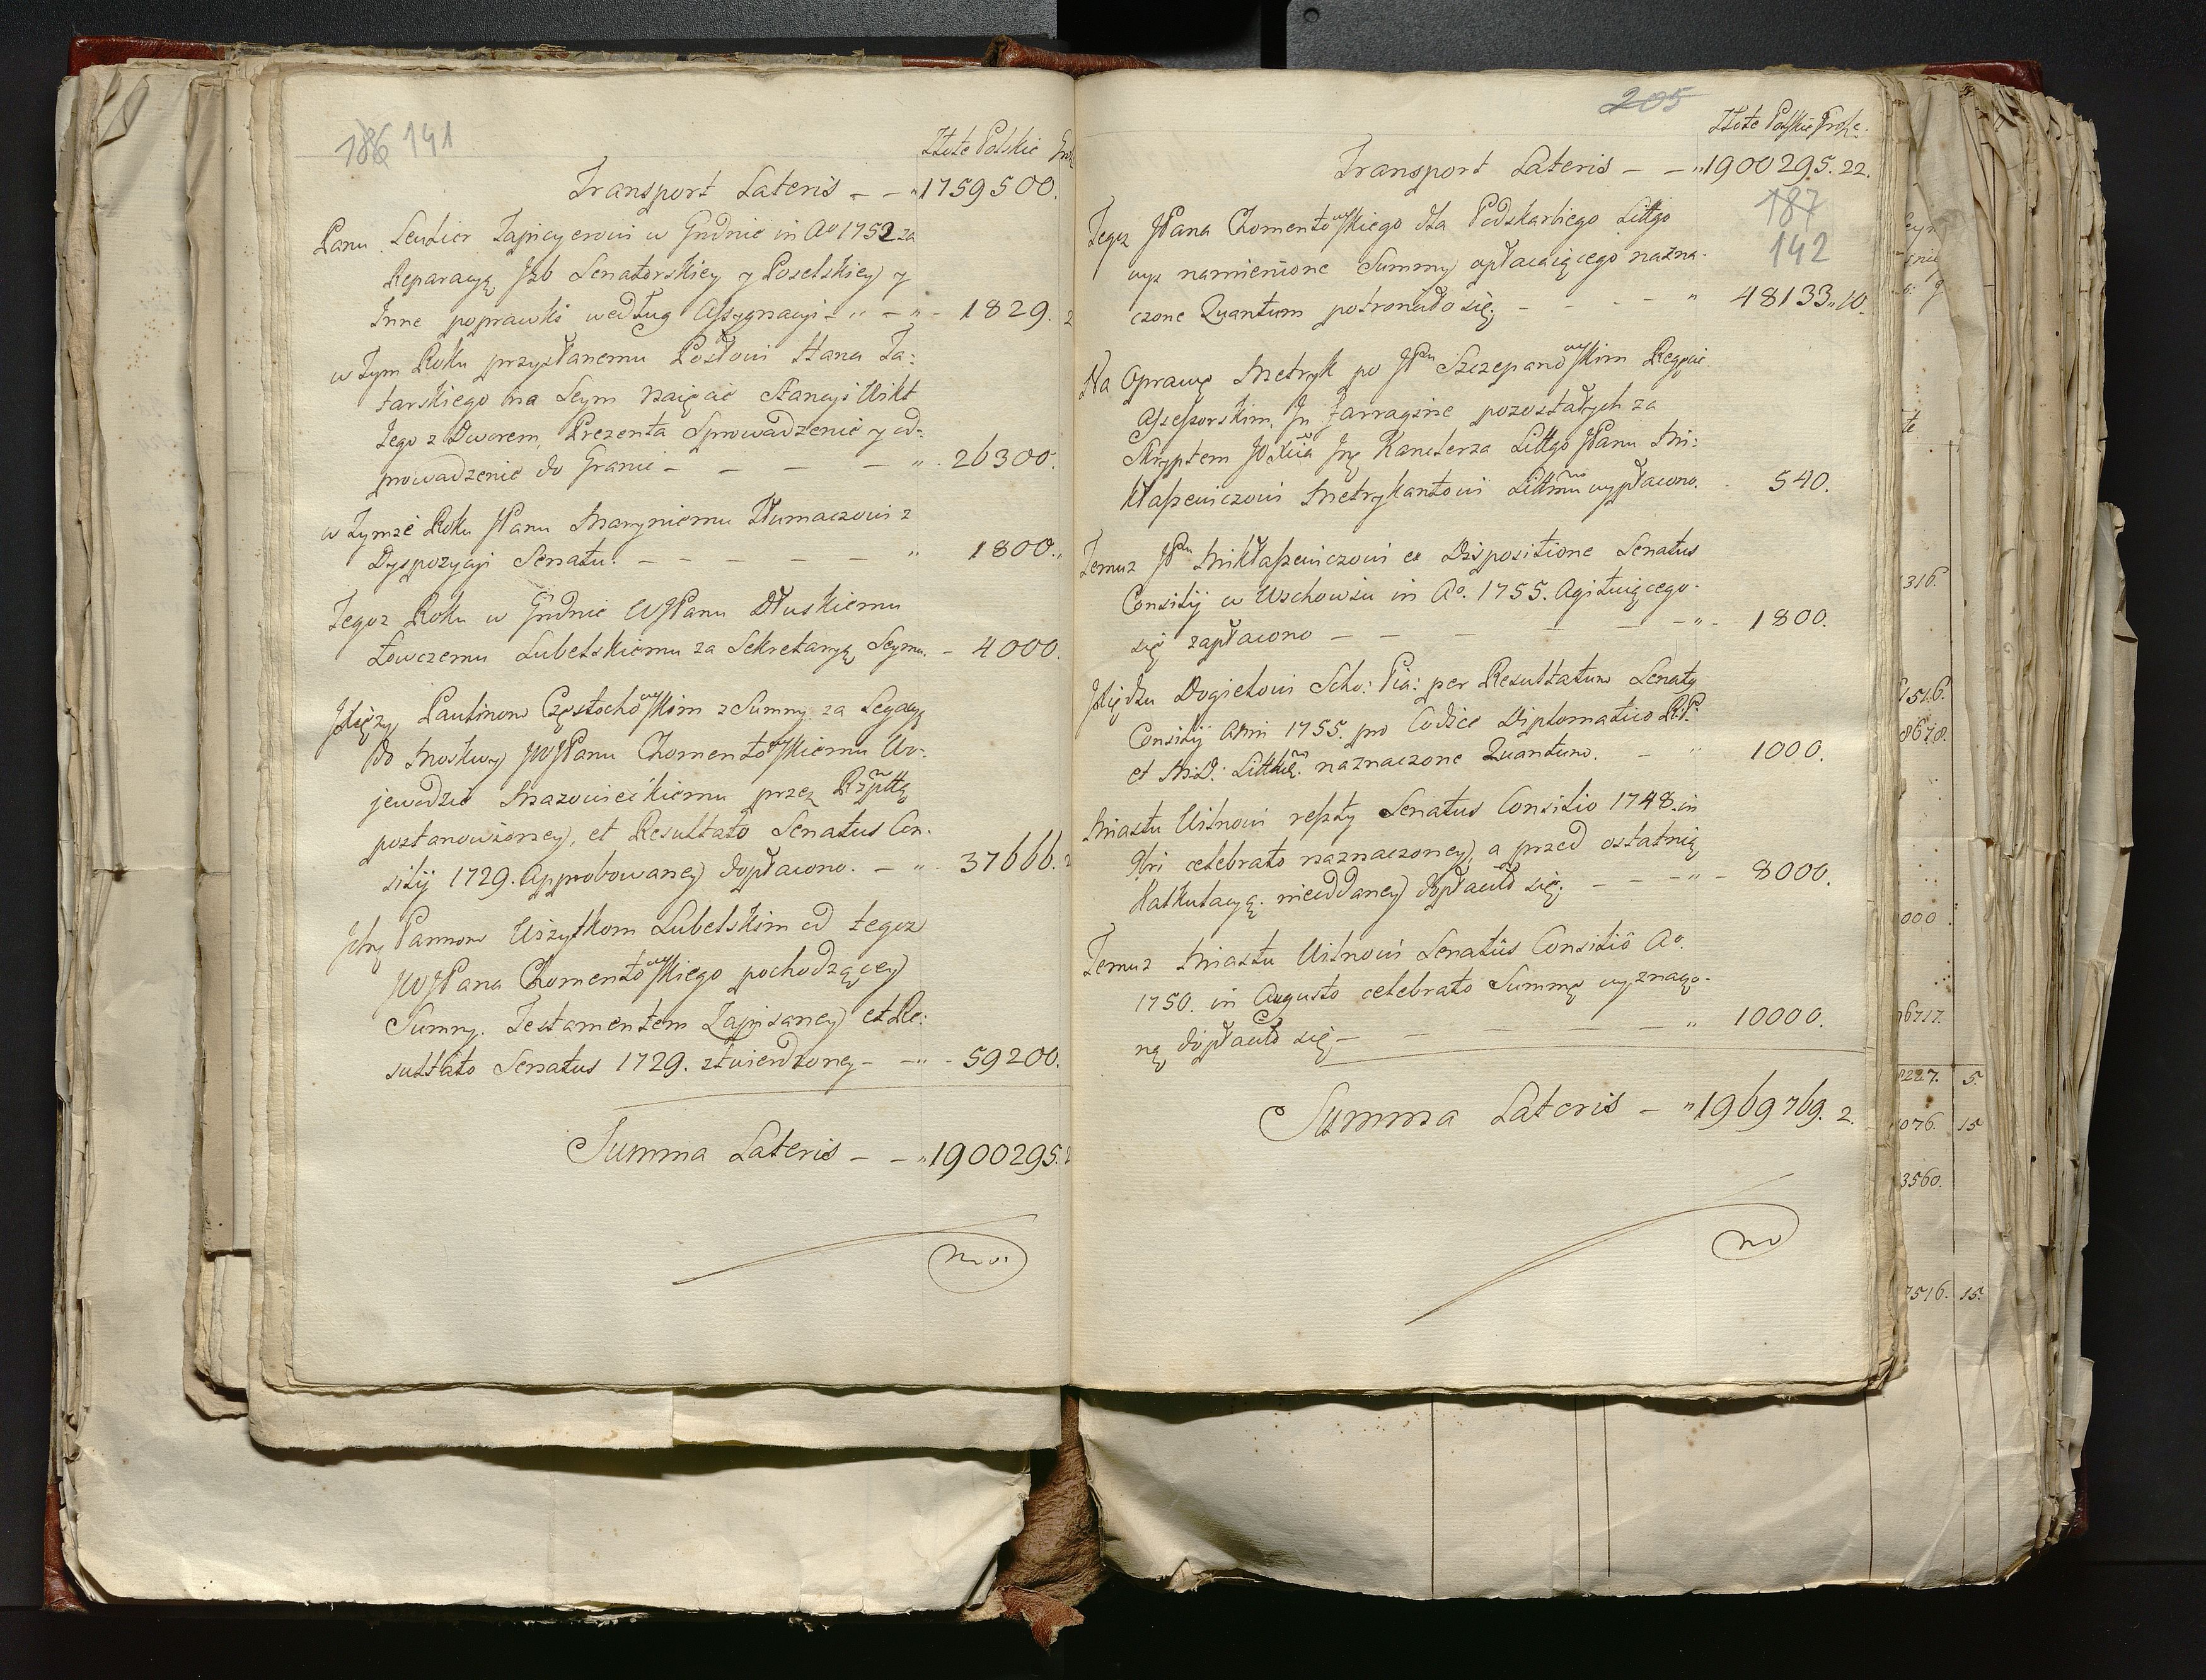 186 141
Złote Polskie
Transport Lateris - - 1759500.
Panu Leuzier Tapicyerowi w Grodnie in Ao 1752 za
Reparacyą Jzb Senatorskiey y Poselskiey y
Inne poprawki według Assygnacyi - " - " - 1829. 2
w Tym Roku przysłanemu Posłowi Hana Ta:
tarskiego na Seym naięcie Stancyi Wikt
Jego z Dworem, Prezenta Sprowadzenie y od=
prowadzenie do Granic - - - - " 26300.
w Tymże Roku JPanu Maryniemu Tłumaczowi z
Dyspozycyi Senatu. - - - - - " 1800."
Tegoż Roku w Grodnie WJPanu Dłuskiemu
Łowczemu Lubelskiemu za Sekretaryą Seymu. - 4000.
Paulinom Częstochowskim z Summy za Legacyą
do Moskwy JWJPanu Chomentowskiemu Wo:
jewodzie Mazowieckiemu przez Rzpttę
postanowioney, et Resultato Senatus Con:
silij 1729. Approbowaney dopłacono. - " - 37666. 2
Pannom Wizytkom Lubelskim od tegoż
JWJPana Chomentowskiego pochodzącey
Summy. Testamentem Zapisaney et Re:
sultato Senatus 1729. ztwierdzoney - - " - 59200.
Summa Lateris - - " 1900295. 2
205
Złote Polskie Grosze.
Transport Lateris - - " 1900295. 22.
187
142
Tegoż JPana Chomentowskiego dla Podskarbiego Littgo
wyż namienione Summy opłacaiącego nazna-
czone Quantum potroniło się. - - - - " 48133 " 10.
Na Oprawę Metryk po JPu Szczepanowskim Regencie
Assessorskim, In farragine pozostałych za
Skryptem JOXcia Jmć Kanclerza Littgo JPanu Mi:
kłaszewiczowi Metrykantowi Littmu wypłacono. - 540.
Temuż JPu Mikłaszewiczowi ex Dispositione Senatus
Consilij w Wschowie in Ao. 1755. Agituiącego
się zapłacono - - - - - - " - 1800.
Xiędzu Dogielowi Scho: Pia: per Resultatum Senatq
Consilij Anni 1755. pro Codice Diplomatico R:P:
et M:D: Littuæ. naznaczone Quantum. - " 1000.
Miastu Wilnowi reszty Senatus Consilio 1748. in
9bri celebrato naznaczoney, a przed ostatnią
Kalkulacyą nieoddaney dopłaciło się. - - - " - 8000.
Temuż Miastu Wilnowi Senatus Consilio Ao.
1750. in Augusto celebrato Summę wyznaczo-
ną dopłaciło się, - - - - - " 10000.
Summa Lateris - " 1969769. 2.
316.
7516.
8678.
000
6717.
227. 5.
076. 15
3560.
7516. 15.